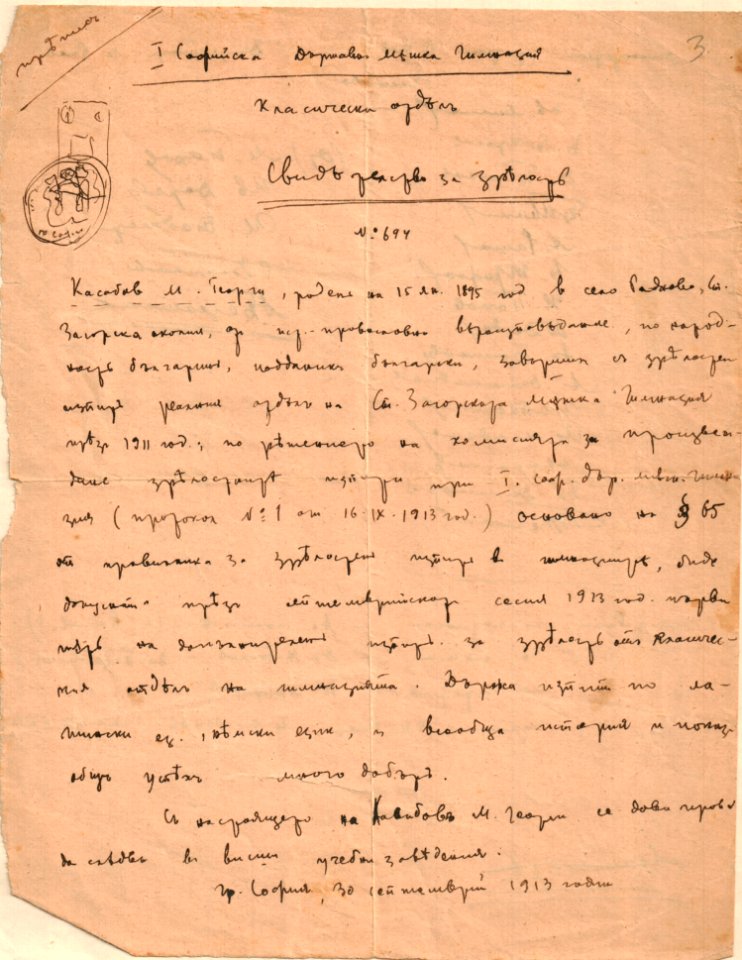 прѣписъ
3
I Софийска Държавна Мѫжка Гимназия
Класически отдѣлъ
Свидѣтелство за зрѣлость
№ 694
Касабов М. Георги, роденъ на 15 ян. 1895 год. в село Раднево, Ст.
Загорска околия, от православно вѣроизповѣдание, по народ-
ность българинъ, поданикъ български, завършил съ зрѣлостен
изпитъ реалния отдѣлъ на Ст. Загорската Мѫжка Гимназия
прѣзъ 1911 год., по рѣшението на комисията за произвеж-
дане зрѣлостнитѣ изпити при I. соф. дър. мѫж. гимна
зия (протокол № 1 от 16.IX.1913 год.) основано на § 65
от правилника за зрѣлостенъ изпитъ в гимназиитѣ, биде
допуснатъ прѣзъ септемврийската сесия 1913 год. първи
пѫть на допълнителенъ изпитъ за зрѣлость отъ класичес-
кия отдѣлъ на гимназията. Държа изпит по ла-
тински ез., нѣмски език, и всеобща история и показа
общъ успѣхъ много добъръ.
Съ настоящето на Касабовъ М. Георги се дава право
да слѣдва въ висши учебни заведѣния.
гр. София, 30 септемврий 1913 година